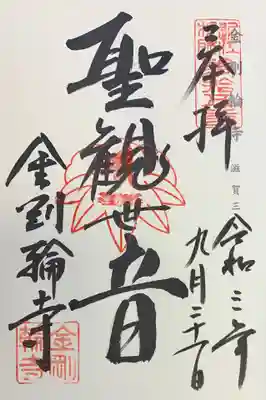 金剛輪寺 滋賀三
奉拝
令和三年
九月
聖観世音
金剛輪寺
金剛
輪寺